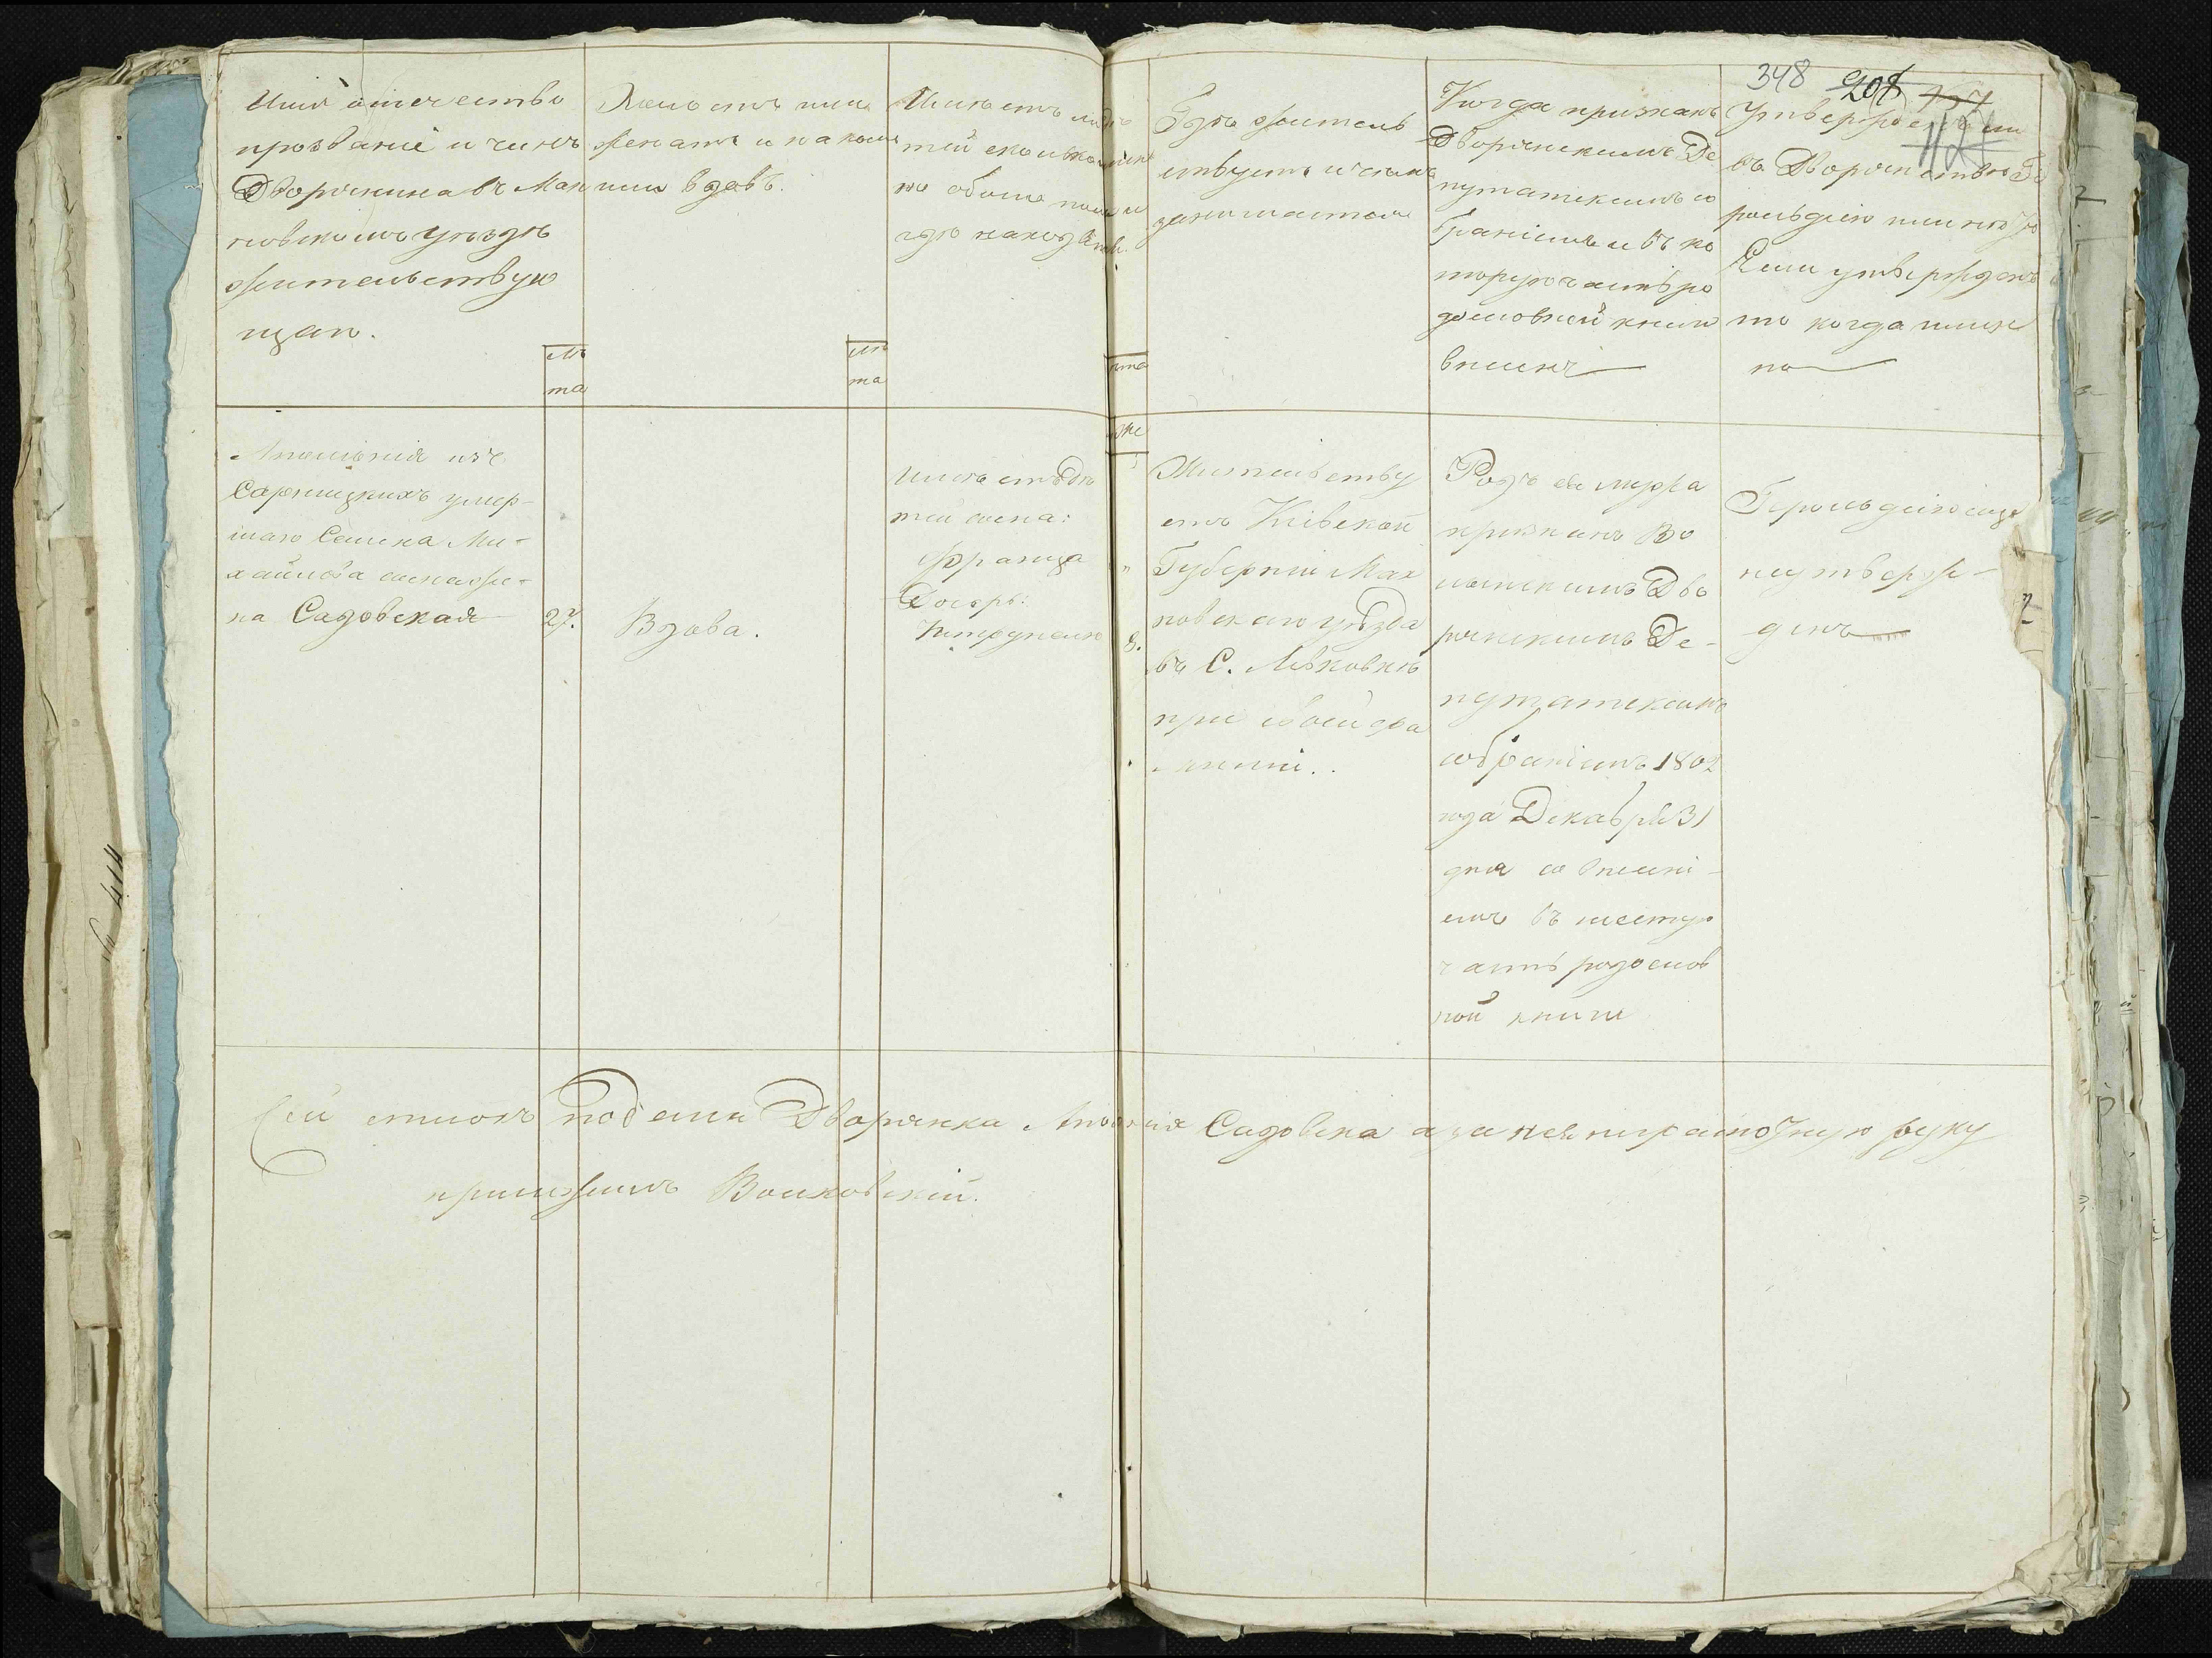 348 208 157
Имя отечество
прозваніе и чинъ
Дворянина въ Мах
новскомъ уѣздѣ
жительствую
щаго.
лѣ
та
Холостъ или
женатъ и на комъ
или вдовъ.
лѣ
та
Имѣетъ ли дѣ
тей сколько имен
но обоего пола и
гдѣ находятся.
лѣта
Гдѣ житель
ствуетъ и чемъ
занимается
Когда признанъ
Дворянскимъ Де
путатскимъ со
браніемъ и въ ко
торую часть ро
дословной книги
внесенъ
Утвержденъ ли
въ Дворянствѣ Ге
рольдіею или нѣтъ
Если утвержденъ
то когда имен
но
Аполонія изъ
Сарницкихъ умер-
шаго Семена Ми-
хайлова сына же-
на Садовская
27.
Вдова.
Имѣетъ дѣ
тей сына:
Франца
Дочерь:
8.
Жительству
етъ Кіевской
Губерніи Мах
новскаго уѣзда
въ С. Левковкѣ
при своей фа
миліи..
Родъ ея мужа
признанъ Во
лынскимъ Дво
рянскимъ Де-
путатскимъ
собраніемъ 1802
года Декабря 31
дня со внесені-
емъ въ шестую
часть родослов
ной книги
Герольдіею еще
неутверж-
денъ
Сей списокъ подала Дворянка Аполонія Садовска а за нея неграмотную руку
приложилъ Волковскій.